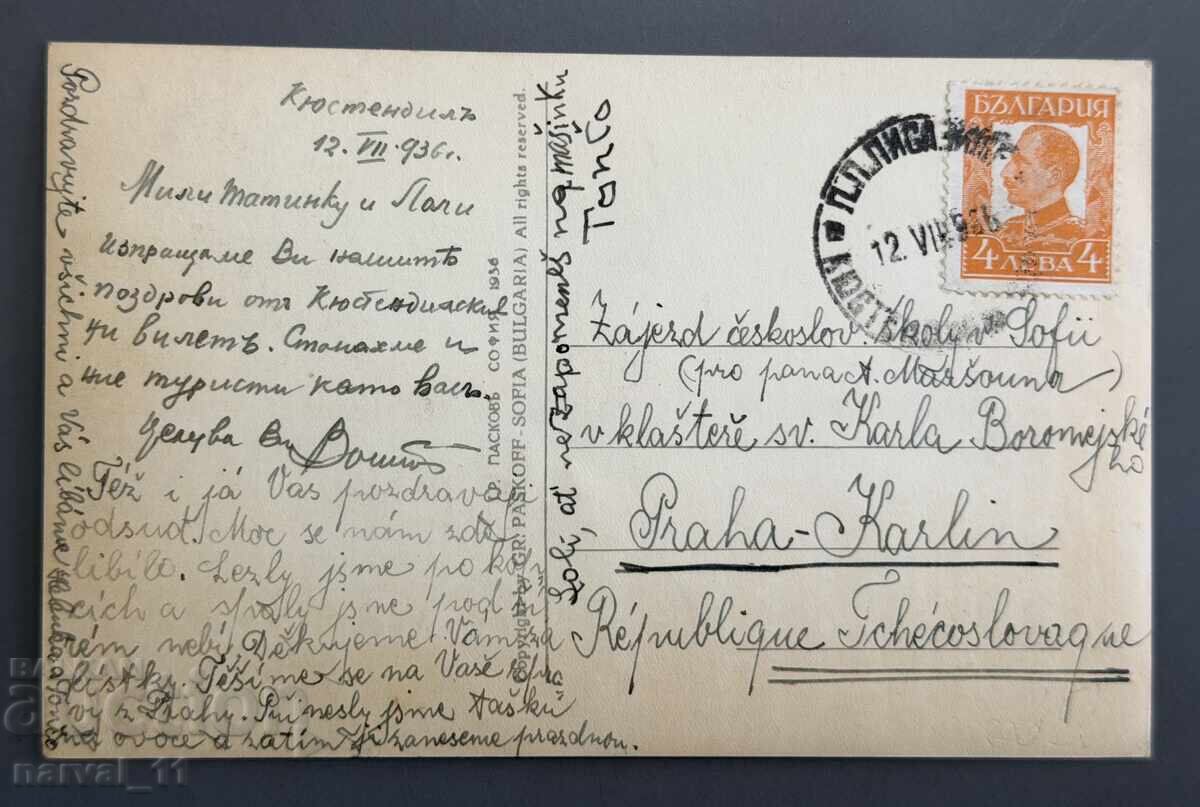 Кюстендилъ
12. VII. 936 г.
Мили Татинку и Лоли
изпращаме Ви нашитѣ
поздрови отъ Кюстендилски
тѣ вилетъ. Станахме и
ние туристи като васъ.
Целува Ви
Též i já Vás pozdravuji
odsud. Moc se nám zde
líbilo. Lezly jsme po kop
cích a spaly jsme pod ši
rém nebi. Děkujeme Vám za
lístky. Těšíme se na Vaše zprá
vy z Prahy. Přinesly jsme tašku
na ovoce a zatím ji zaneseme prazdnou.
Pozdravujte všichni a Vás líbáme Helenka a Tonco
ГР. ПАСКОВЪ СОФИЯ 1936
Copyright by GR. PASKOFF - SOFIA (BULGARIA) All rights reserved.
Loli, ať nezapomeneš na mašinku
Tončo
БЪЛГАРИЯ
4 ЛЕВА 4
12. VII
Zájezd českoslov. školy v Sofii
(pro pana A. Maršouna)
v klášteře sv. Karla Boromejské
ho
Praha-Karlin
République Tchécoslovaque
narval_11